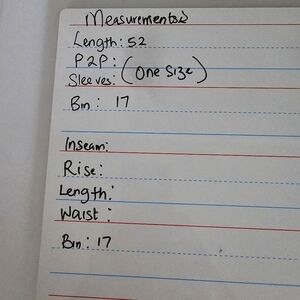 Measurements
Length: 52
P2P: (One Size)
Sleeves:
Bin: 17
Inseam:
Rise:
Length:
Waist:
Bin: 17